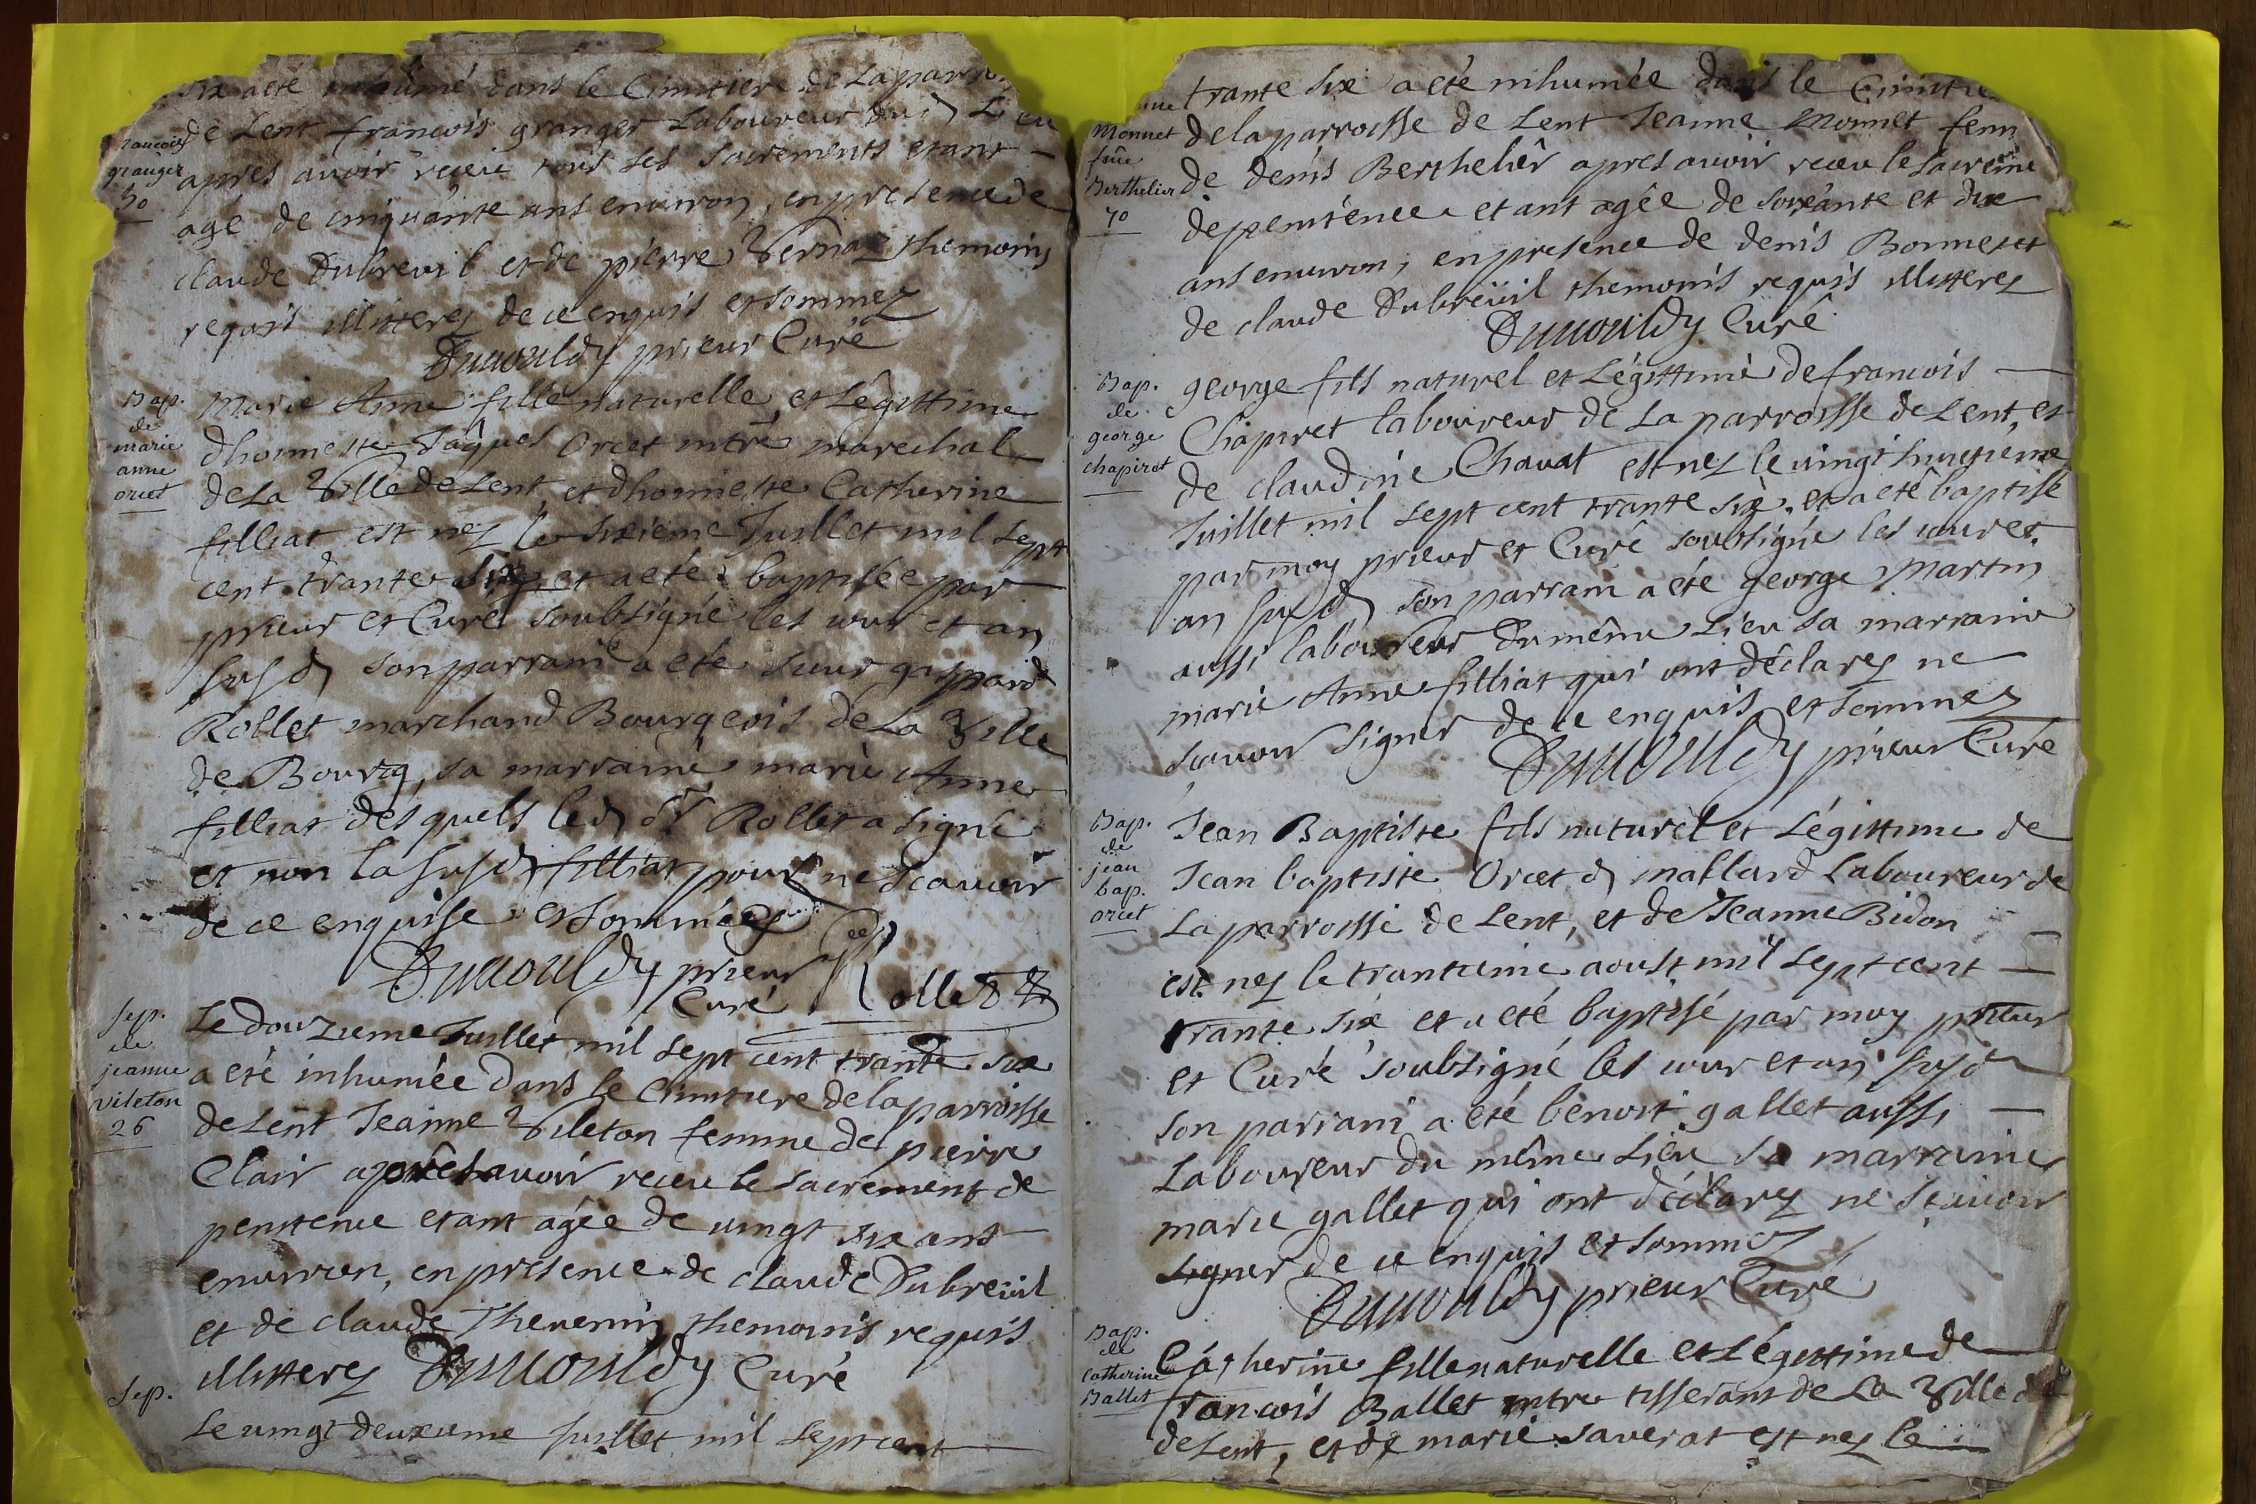 six a eté inhumé dans le Cimitiere de La parr
de Lent francois granger Laboureur dud Lieu
apres avoir receu tous ses sacrements etant
agé de cinquante ans environ, en presence de
claude Dubreuil et de pierre Vernaz themoins
requis illitterez de ce enquis et sommez
Duvouldy prieur Curé
francois
granger
50
Bap.
de
marie
anne
orcet
Marie Anne fille naturelle et Légittime
dhonneste Jaques Orcet mtre marechal
de La Ville de Lent et dhonneste Catherine
filliat est nez le sixieme Juillet mil sept
cent trante six et a eté baptisée par
prieur et Curé soubsigné les iour et an
susd son parrain a eté sieur gaspard
Rollet marchand Bourgeois de La Ville
de Bourg, sa marraine marie Anne
filliat desquels led sr Rollet a signé
et non la susd filliat pour ne scavoir
de ce enquise et sommée
Duvouldy prieur
Curé Rollet
Sep.
de
jeanne
vileton
26
Le douzieme Juillet mil sept cent trante six
a eté inhumée dans le Cimitiere de la parroisse
de Lent Jeanne Vileton femme de pierre
Clair aprês avoir receu le sacrement de
penitence etant agée de vingt six ans
environ, en presence de claude Dubreuil
et de claude Thevenin themoins requis
illitterez Duvouldy Curé
Sep.
Le vingt deuxieme Juillet mil sept cent
trante six a eté inhumée dans le Cimitie
de la parroisse de Lent Jeanne Monnet fem
de denis Berthelier apres avoir receu le sacreme
de penitence etant agée de soixante et dix
ans environ, en presence de denis Bonnet et
de claude Dubreüil themoins requis illitterez
Duvouldy Curé
Monnet
fme
Berthelier
70
Bap.
de
george
chapiret
george fils naturel et Légittime de francois
Chapiret laboureur de La parroisse de Lent, et
de claudine Chavat est nez le vingt huitieme
Juillet mil sept cent trante six, et a eté baptisé
par moy prieur et Curé soubsigné les iour et
an susd son parrain a eté george Martin
aussi laboureur du même Lieu sa marraine
marie Anne filliat qui ont déclarez ne
scavoir signer de ce enquis et sommez
Duvouldy prieur Curé
Bap.
de
jean
bap.
orcet
Jean Baptiste fils naturel et Légittime de
Jean baptiste Orcet d mallard Laboureur de
La parroisse de Lent, et de Jeanne Bidon
est nez le trantieme aoust mil sept cent
trante six et a eté baptisé par moy prieur
et Curé soubsigné les iour et an susd
son parrain a eté benoit gallet aussi
Laboureur du même Lieu sa marraine
marie gallet qui ont déclarez ne scavoir
signer de ce enquis et sommez
Duvouldy prieur Curé
Bap.
de
Catherine
Ballet
Catherine fille naturelle et Légittime de
francois Ballet mtre tisserant de La Ville de
de Lent, et de marie Saverat est nez le